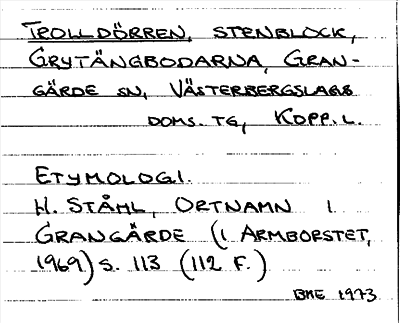 TROLLDÖRREN, STENBLOCK,
GRYTÄNGBODARNA, GRAN-
GÄRDE SN, VÄSTERBERGSLAGS
DOMS. TG, KOPP. L.
ETYMOLOGI.
H. STÅHL, ORTNAMN I
GRANGÄRDE (I ARMBORSTET,
1969) S. 113 (112 F.)
BME 1973